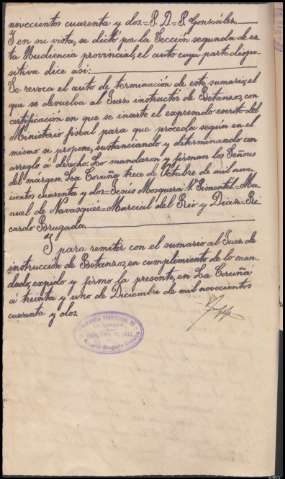 novecientos cuarenta y dos=P. D=P. González.
Y en su vista, se dictó por la Sección segunda de es
ta Audiencia provincial, el auto cuya parte dispo
sitiva dice así:
Se revoca el auto de terminación de este sumario; el
que se devuelva al Juez instructor de Betanzos, con
certificación en que se inserte el expresado escrito del
Ministerio fiscal para que proceda según en el
mismo se propone, sustanciando y determinando con
arreglo a derecho. Lo mandaron y firman los Señores
del margen. La Coruña trece de Octubre de mil nove
cientos cuarenta y dos=Jesús Mosquera P. Pimentel=Ma
nuel de Navasqués=Marcial del Rio y Diaz=Ri
cardo Brugada.
Y para remitir con el sumario al Juez de
instrucción de Betanzos, en cumplimiento de lo man
dado, expido y firmo la presente, en La Coruña
a treinta y uno de Diciembre de mil novecientos
cuarenta y dos